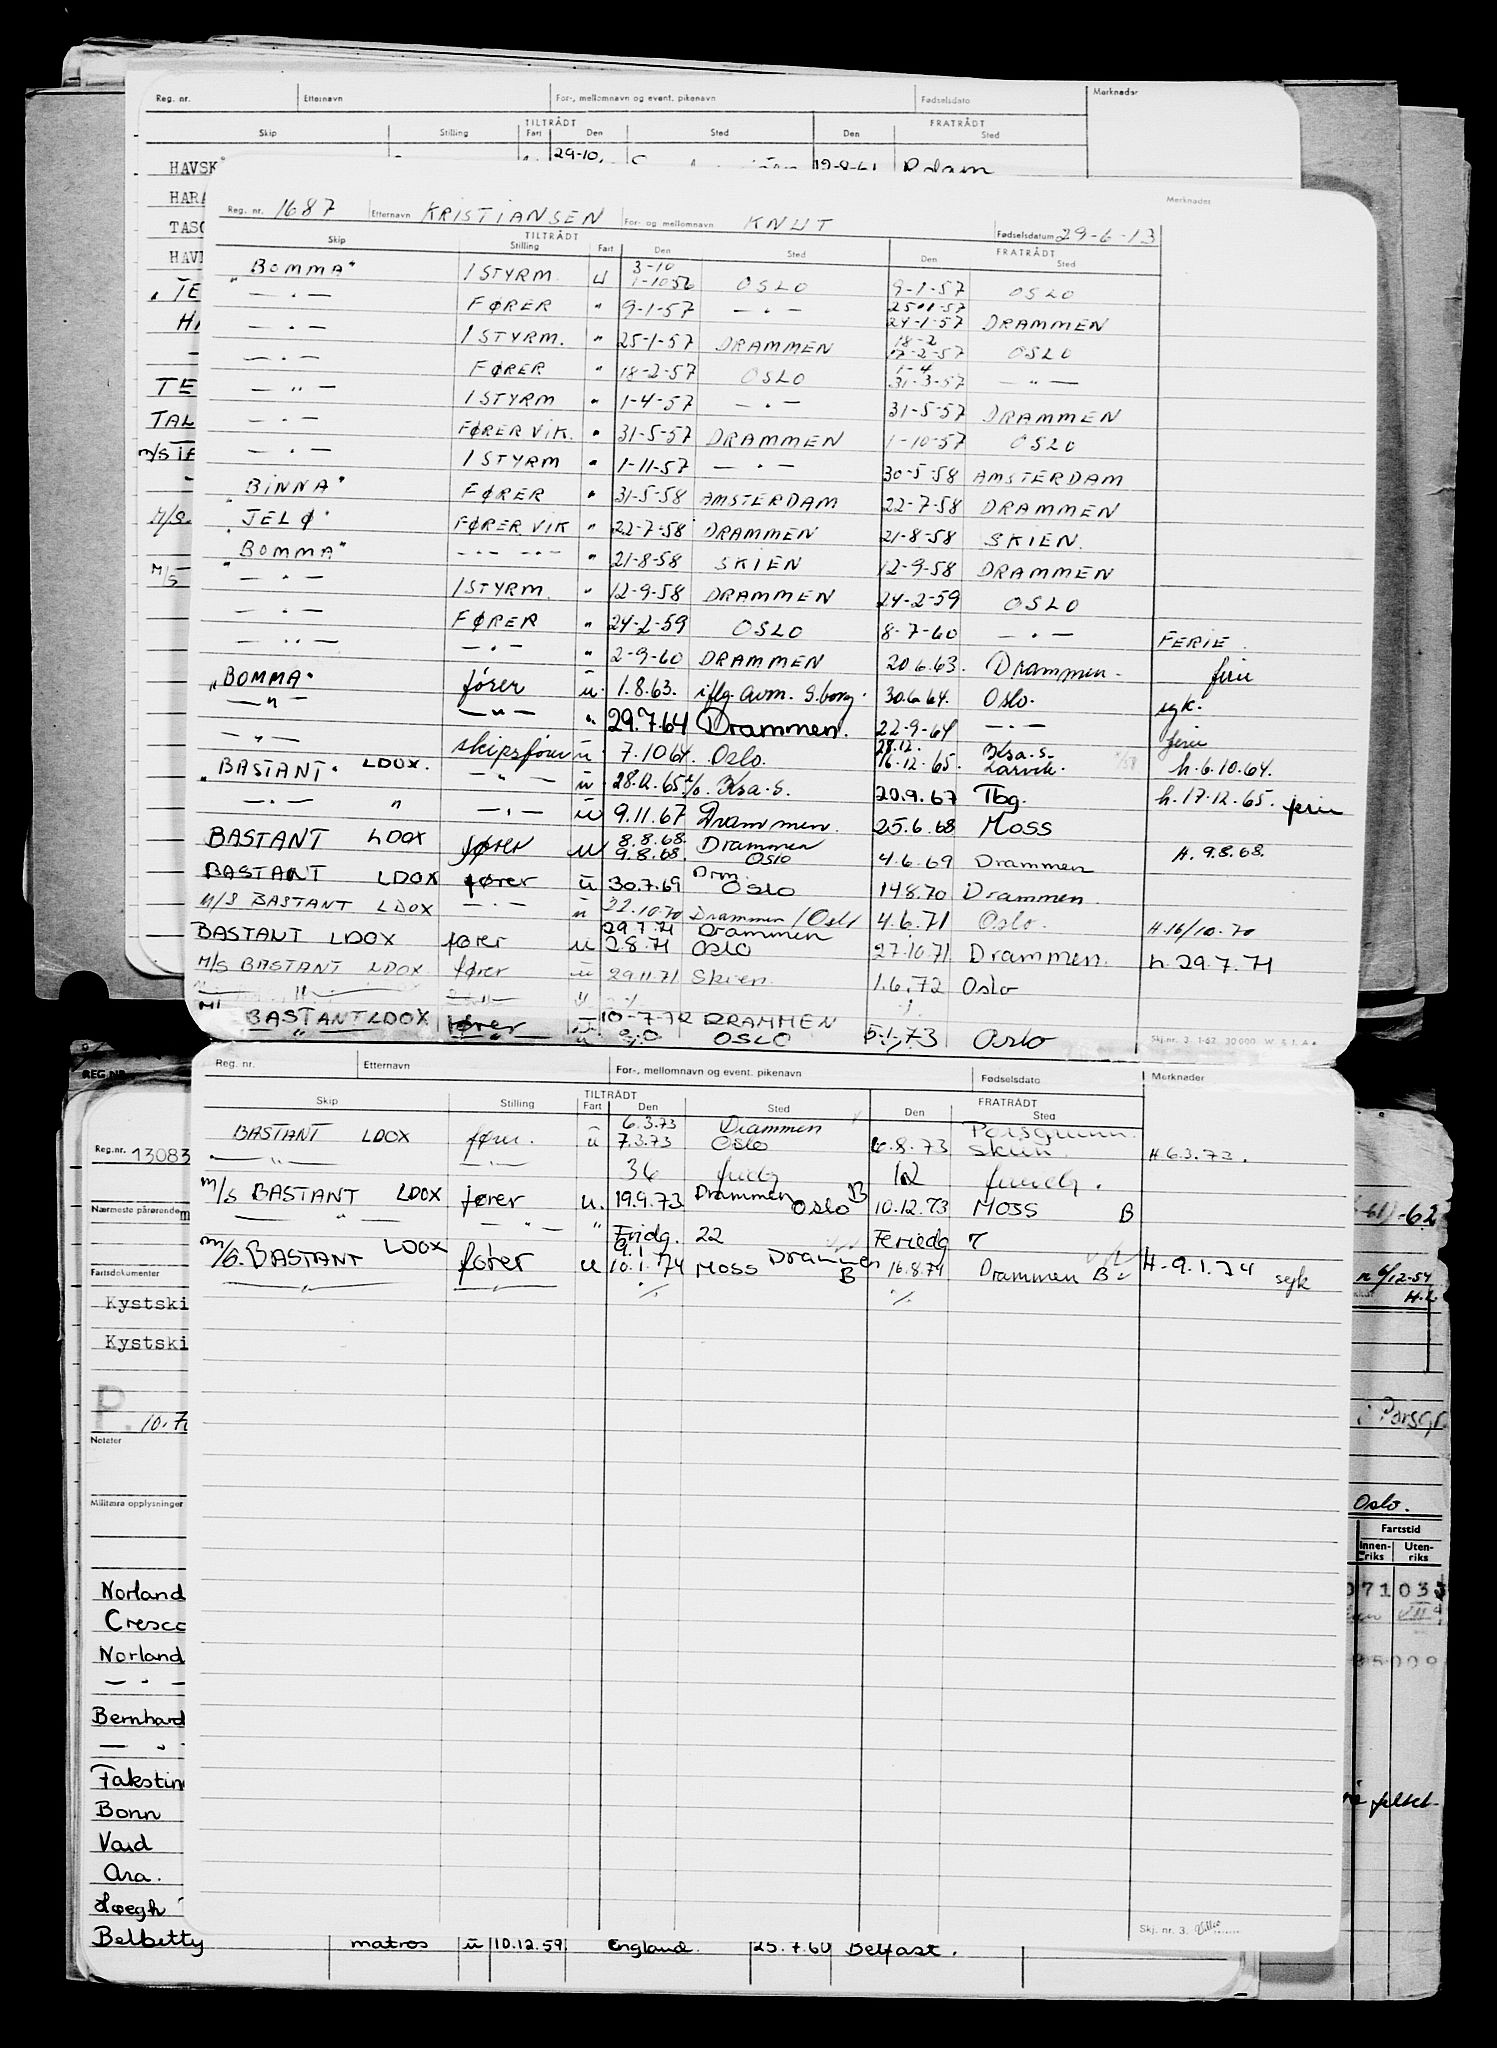 Reg. nr. Etternavn For-, mellomnavn og event. pikenavn Fødselsdato Merknader
TILTRÅDT FRATRÅDT
Skip Stilling Fart Den Sted Den Sted
HAVSK 29-10. 19-8-61 Rdam
HARA
TASC
HAVI
"TE
HA
TE
TAL
M/S TE
M/S.
M/S
Reg. nr. 1687 Etternavn KRISTIANSEN For- og mellomnavn KNUT Fødselsdatum 29-6-13 Merknader
TILTRÅDT FRATRÅDT
Skip Stilling Fart Den Sted Den Sted
"BOMMA" 1 STYRM. U 3-10 1-10 56 OSLO 9-1-57 OSLO
— . — FØRER " 9-1-57 — . — 25-1-57 24-1-57 DRAMMEN
— . — 1 STYRM. " 25-1-57 DRAMMEN 18-2 17-2-57 OSLO
— . — FØRER " 18-2-57 OSLO 1-4 31-3-57 — " —
— " — 1 STYRM " 1-4-57 — . — 31-5-57 DRAMMEN
— . — FØRER VIK. " 31-5-57 DRAMMEN 1-10-57 OSLO
— . — 1 STYRM " 1-11-57 — . — 30-5-58 AMSTERDAM
"BINNA" FØRER " 31-5-58 AMSTERDAM 22-7-58 DRAMMEN
"JELØ" FØRER VIK " 22-7-58 DRAMMEN 21-8-58 SKIEN.
"BOMMA" — . — — . — " 21-8-58 SKIEN 12-9-58 DRAMMEN
— . — 1 STYRM. " 12-9-58 DRAMMEN 24-2-59 OSLO
— . — FØRER " 24-2-59 OSLO 8-7-60 — . — FERIE.
— " — — . — " 2-9-60 DRAMMEN 20.6.63. Drammen. ferie
"BOMMA" fører u. 1.8.63. iflg. avm. S.borg. 30.6.64. Oslo. syk.
— " — — " — " 29.7.64 Drammen. 22-9-64 — . — ferie
— " — skipsfører u 7.10 64. Oslo. 28.12. 16.12.65. Krsa.s. Larvik. h. 6.10.64.
"BASTANT" LDOX. — " — u. 28.12.65 Krsa.s. 20.9.67 Tbg. h. 17.12.65. ferie
— . — " — . — u 9.11.67 Drammen. 25.6.68 Moss
BASTANT LDOX fører u 8.8.68. 9.8.68. Drammen Oslo 4.6.69 Drammen H. 9.8.68.
BASTANT LDOX fører u 30.7.69 Drm. OSLO 14.8.70 Drammen.
M/S BASTANT LDOX — . — u 22.10.70 Drammen / Oslo 4.6.71 Oslo. H.16/10.70
BASTANT LDOX fører u 29.7.71 2.8.71 Drammen OSLO 27.10.71 Drammen. h. 29.7.71
M/S BASTANT LDOX. fører u 29.11.71 Skien. 1.6.72 Oslo
— " — — " — u
M/ BASTANT LDOX fører u. 10-7-72 DRAMMEN 5.1.73 Oslo
" OSLO
Skj. nr. 3. 1-62. 30000. W. S. I. A.
Reg. nr. Etternavn For-, mellomnavn og event. pikenavn Fødselsdato Merknader
TILTRÅDT FRATRÅDT
Skip Stilling Fart Den Sted Den Sted
BASTANT LDOX fører. u 6.3.73 7.3.73 Drammen Oslo 6.8.73 Porsgrunn. Skien. H 6.3.73.
— " — — . — 36 fridg 12 feriedg.
M/S BASTANT LDOX fører u. 19.9.73 Drammen Oslo B 10.12.73 MOSS B
— " — — " — " Fridg. 22 Feriedg 7
M/S. BASTANT LDOX fører u 9.1. 10.1.74 MOSS Drammen B 16.8.74 Drammen B H. 9.1.74 syk
— " — — " — % %
REG.NR.
Reg.nr. 13083
Nærmeste pårørende
-62
Fartsdokumenter
6/12-54
Kystski H.L
Kystski
P. 10.7
i Porsgr
Notater
Militære opplysninger
Oslo.
Fartstid
Innenriks Utenriks
Norland 071033
Cresco
Norland
— . —
Bernhard
— "
Fakstin
Bonn
Vard
Ara.
Høegh
Skj. nr. 3.
Belbetty matros u 10.12.59 England. 25.7.60 Belfast.